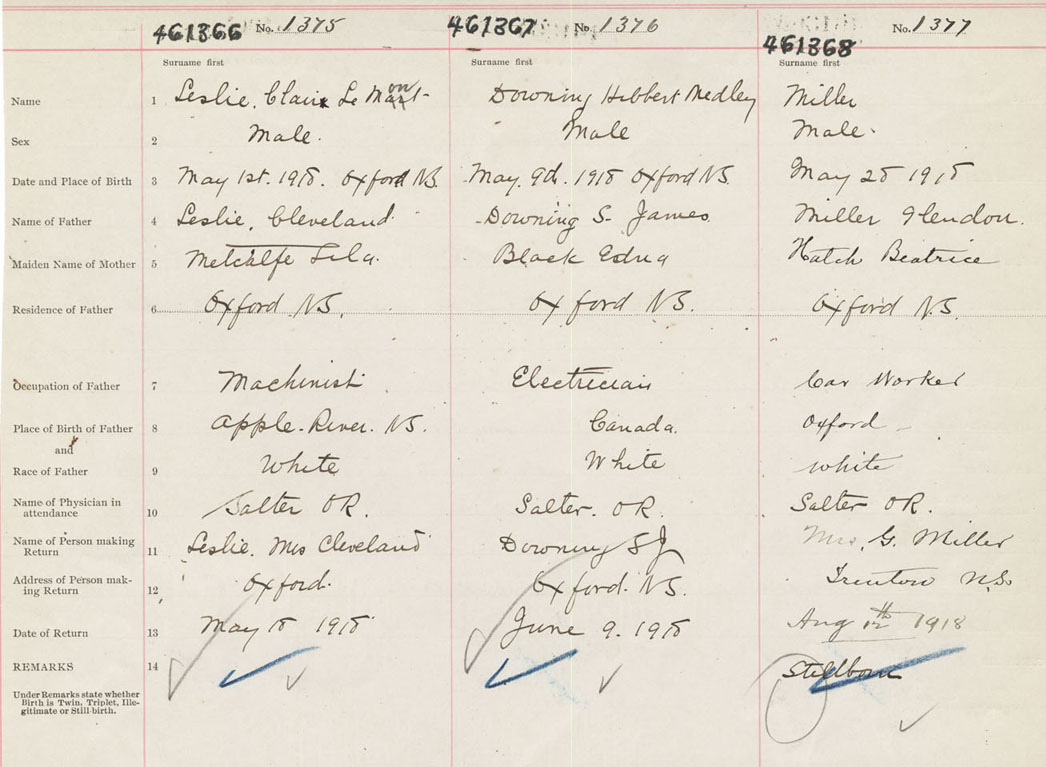 461366 No. 1375 461367 No. 1376 461368 No. 1377
Surname first Surname first Surname first
Name 1 Leslie, Claire Le Mont Downing Hibbert Medley Miller
Sex 2 Male. Male Male.
Date and Place of Birth 3 May 1st. 1918. Oxford NS. May. 9th. 1918 Oxford NS. May 28 1918
Name of Father 4 Leslie, Cleveland Downing S. James Miller Glendon.
Maiden Name of Mother 5 Metcalfe Lila. Black Edna Hatch Beatrice
Residence of Father 6 Oxford NS. Oxford NS. Oxford N.S.
Occupation of Father 7 Machinist Electrician Car Worker
Place of Birth of Father 8 Apple River. NS. Canada. Oxford
and
Race of Father 9 White White white
Name of Physician in
attendance 10 Salter OR. Salter. OR. Salter OR.
Name of Person making
Return 11 Leslie. Mrs Cleveland Downing SJ Mrs. G. Miller
Address of Person mak-
ing Return 12 Oxford. Oxford. NS. Trenton N.S.
Date of Return 13 May 18 1918 June 9. 1918 Aug 12th 1918
REMARKS 14 Stillborn
Under Remarks state whether
Birth is Twin, Triplet, Ille-
gitimate or Still-birth.